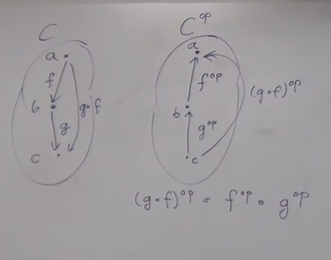 C
a
f
b
g∘f
g
c
C^op
a
f^op
(g∘f)^op
b
g^op
c
(g∘f)^op = f^op ∘ g^op